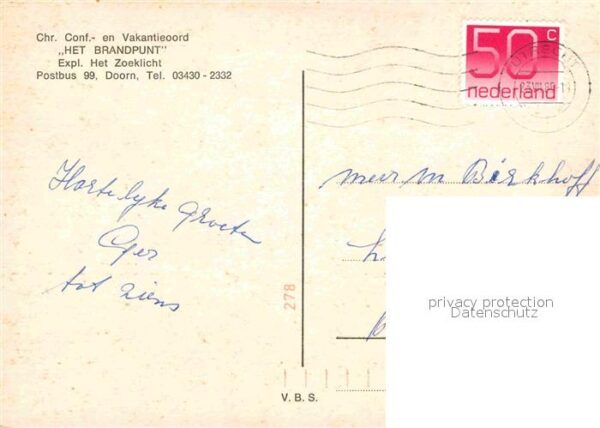 Chr. Conf.- en Vakantieoord
„HET BRANDPUNT"
Expl. Het Zoeklicht
Postbus 99, Doorn, Tel. 03430 - 2332
50 c
nederland
UTRECHT
Hartelijke groeten
Ger
tot ziens
278
V. B. S.
mevr M Berkhoff
privacy protection
Datenschutz